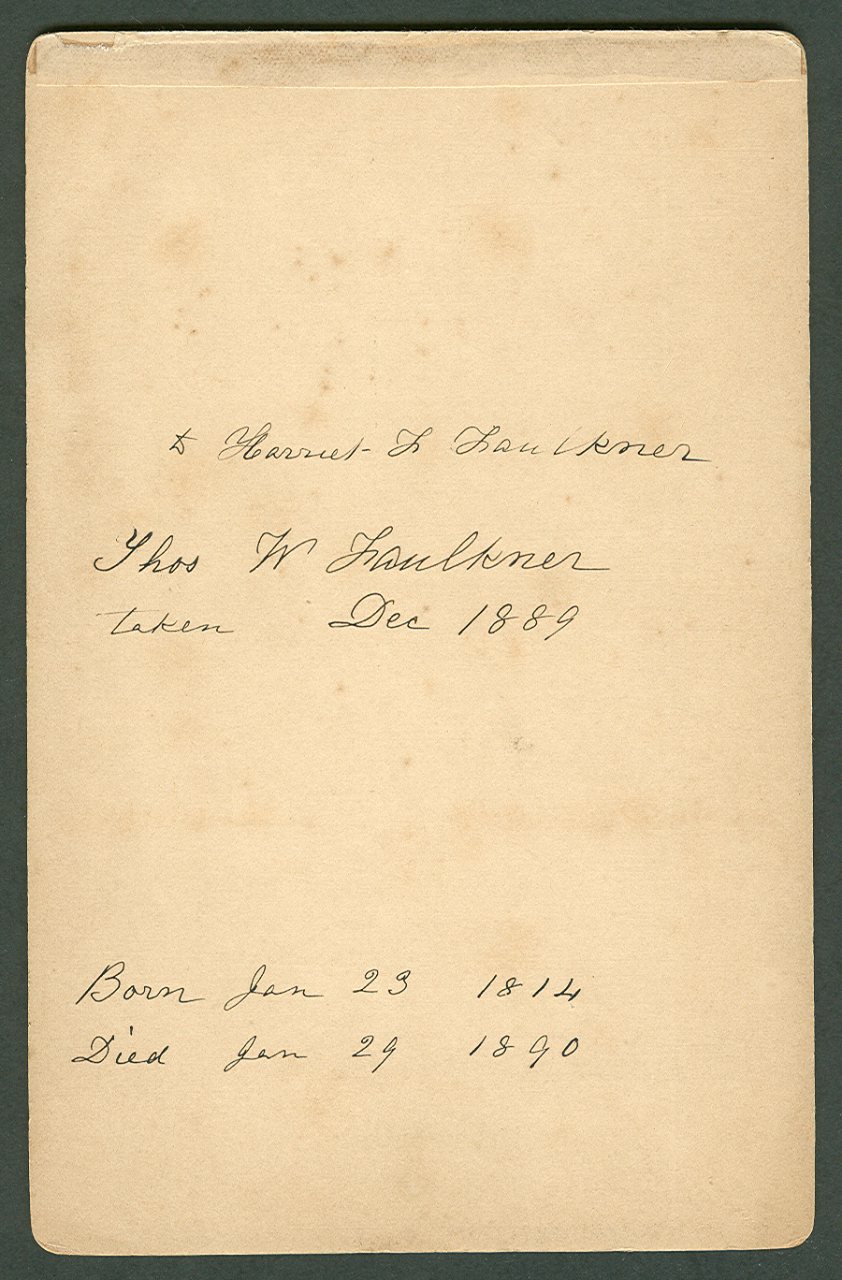 to Harriet F Faulkner
Thos W Faulkner
taken Dec 1889
Born Jan 23 1814
Died Jan 29 1890